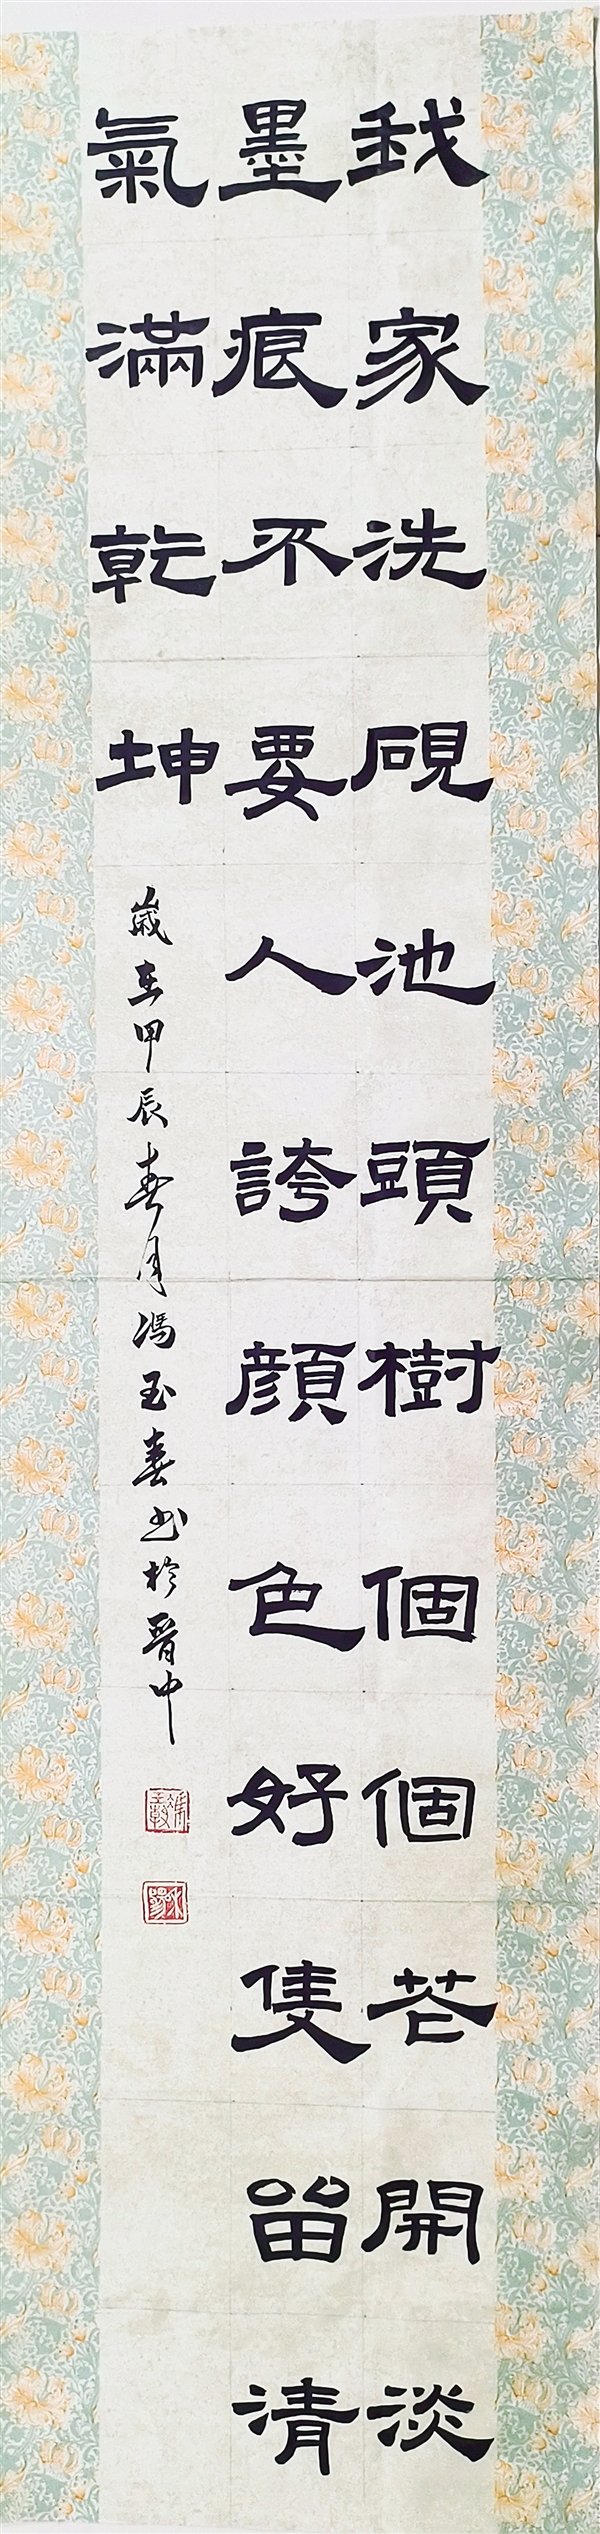 我家洗硯池頭樹個個花開淡
墨痕不要人誇顔色好隻留清
氣滿乾坤
歲在甲辰春月馮玉春书於晉中